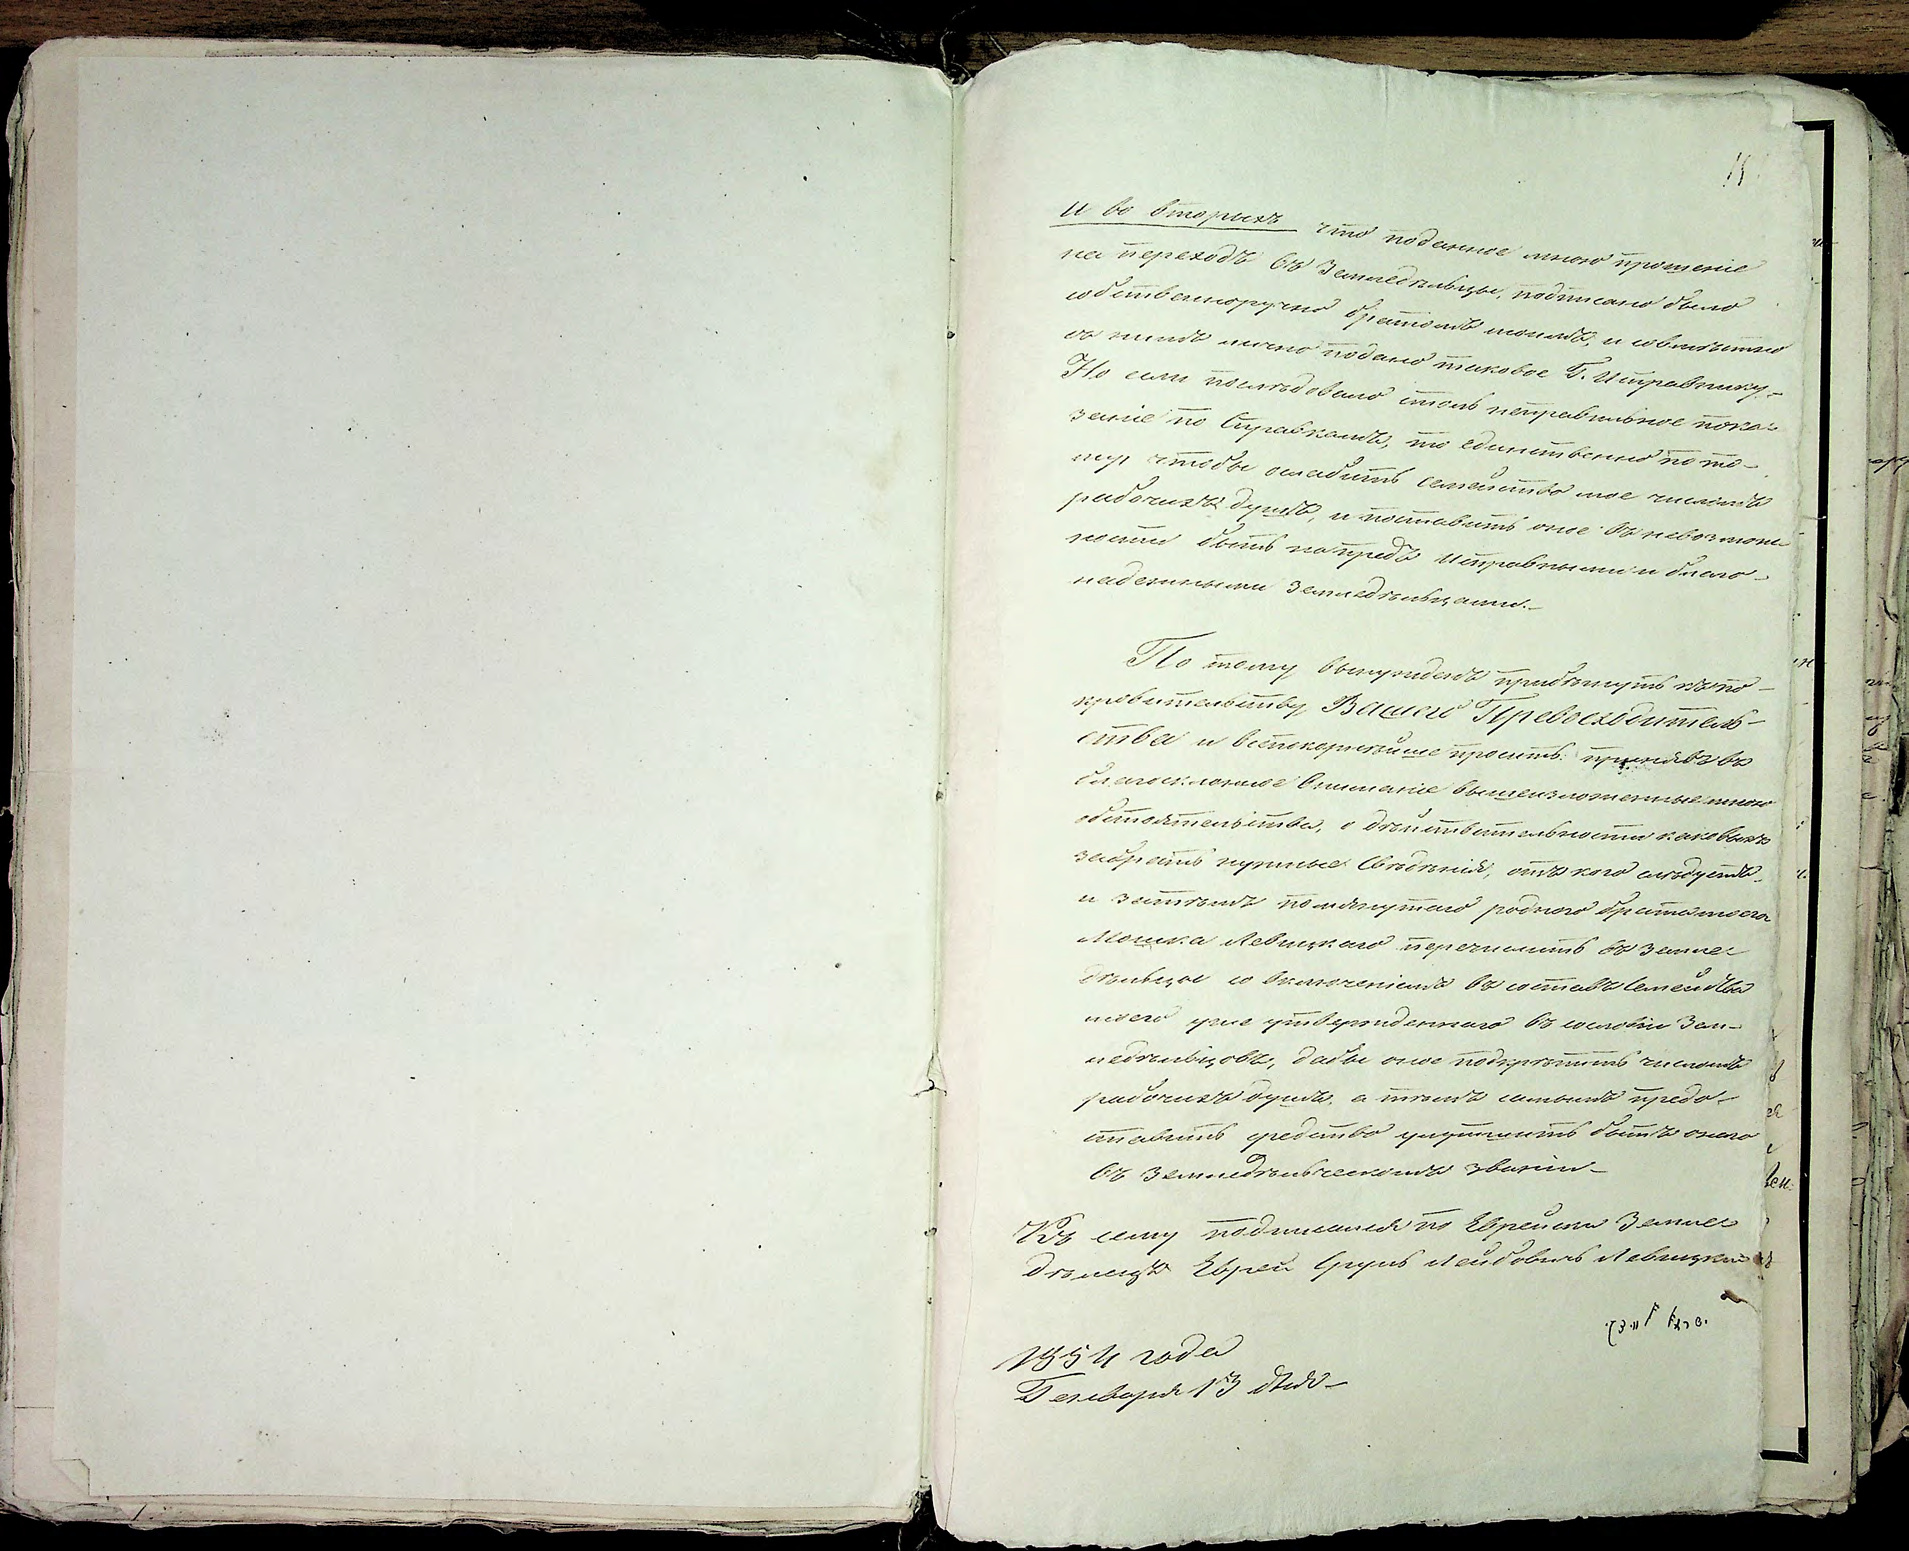 и во вторыхъ что поданное мною прошеніе
на переходъ въ Земледѣльцы, подписано было
собственноручно братомъ моимъ, и совмѣстно
съ нимъ лично подано таковое Г. Исправнику.-
Но если послѣдовало столь неправильное пока-
заніе по Справкамъ, то единственно по то-
му чтобы ослабить семейство мое числомъ
рабочихъ душъ, и поставить оное въ невозмож-
ности быть напредъ исправными и благо-
надежными земледѣльцами.-
По тому вынужденъ прибѣгнуть къ по-
кровительству Вашего Превосходитель-
ства и всепокорнѣйше просить: принявъ въ
благосклонное вниманіе вышеизложенные мною
обстоятельства, о дѣйствительности каковыхъ
забрать нужные свѣдѣнія, отъ кого слѣдуетъ
и затѣмъ помянутаго роднаго брата моего
Мошка Левицкаго перечислить въ земле-
дѣльцы со включеніемъ въ составъ семейства
моего уже утвержденнаго въ сословіи Зем-
ледѣльцовъ, дабы оное подкрѣпить числомъ
рабочихъ душъ, а тѣмъ самымъ предо-
ставить средство улучшить бытъ онаго
въ земледѣльческомъ званіи-
Къ сему подписался по Еврейски Земле
дѣлецъ Еврей Сруль Лейбовичъ Левицкій
1854 года
Генваря 13 дня-